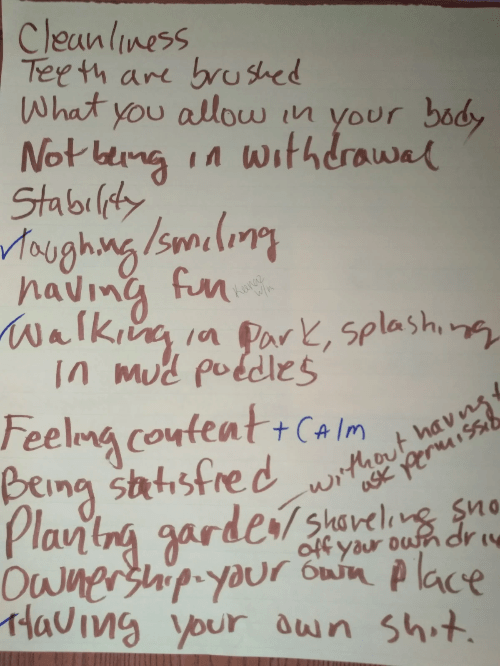 Cleanliness
Teeth are brushed
What you allow in your body
Not being in withdrawal
Stability
laughing/smiling
having fun
Walking in park, splashing
in mud puddles
Feeling content + CAlm
Being satisfied
without having t
ask permissib
Planting garden/shoveling sno
off your own driv
Ownership-your own place
Having your own shit.